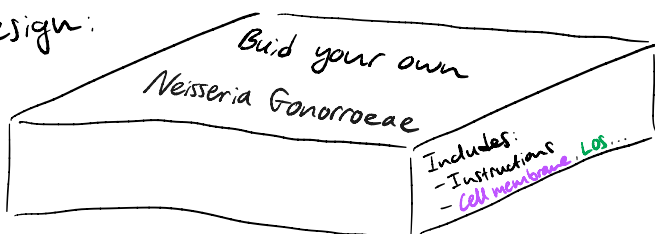 esign:
Buid your own
Neisseria Gonorroeae
Includes:
- Instructions
- Cell membrane, LOS...